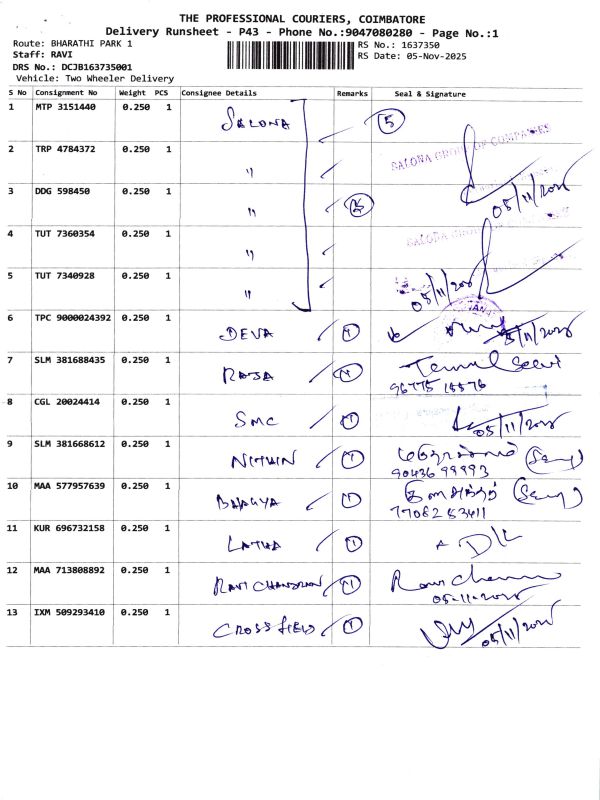 THE PROFESSIONAL COURIERS, COIMBATORE
Delivery Runsheet - P43 - Phone No.:9047080280 - Page No.:1
Route: BHARATHI PARK 1
RS No.: 1637350
Staff: RAVI
RS Date: 05-Nov-2025
DRS No.: DCJB163735001
Vehicle: Two Wheeler Delivery
S No Consignment No Weight PCS Consignee Details Remarks Seal & Signature
1 MTP 3151440 0.250 1 SALONA 5 SALONA GROUP OF COMPANIES
2 TRP 4784372 0.250 1 "
3 DDG 598450 0.250 1 " 05/11/2025
4 TUT 7360354 0.250 1 " SALONA GROUP
5 TUT 7340928 0.250 1 " 05/11/2025
6 TPC 9000024392 0.250 1 DEVA 1 5/11/2025
7 SLM 381688435 0.250 1 RAJA 1
8 CGL 20024414 0.250 1 SMC 1 05/11/2025
9 SLM 381668612 0.250 1 NITHIN 1
90436 99993
10 MAA 577957639 0.250 1 BHAGYA 1
77082 83411
11 KUR 696732158 0.250 1 LATHA 1
12 MAA 713808892 0.250 1 RAVI CHANDRAN 1
05-11-2025
13 IXM 509293410 0.250 1 CROSSFIELD 1 05/11/2025